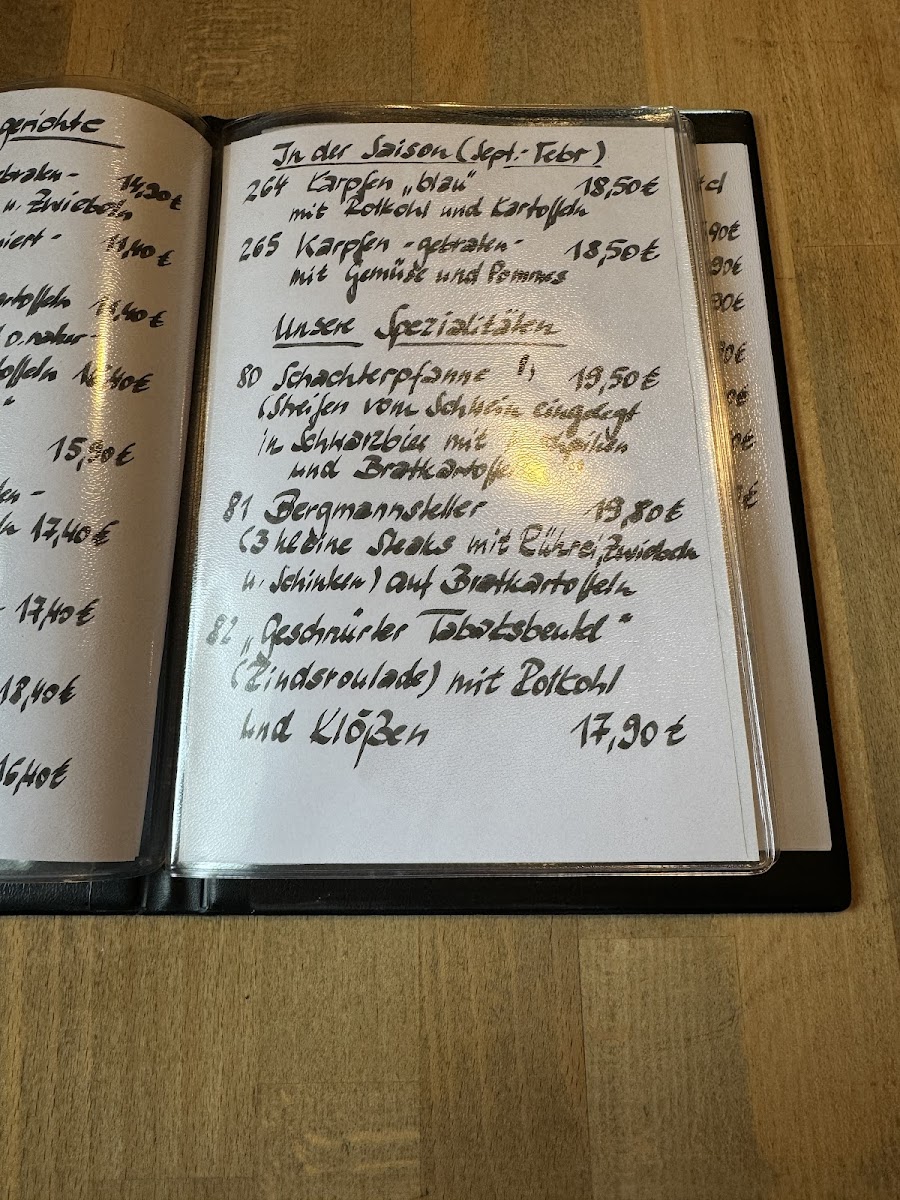 gerichte
braten-
u. Zwiebeln 14,90€
niert- 11,40€
artoffeln 11,40€
l o. natur-
toffeln 40€
15,90€
en-
ln 17,40€
- 17,40€
18,40€
16,40€
In der Saison (Sept.-Febr)
264 Karpfen „blau“ 18,50€
mit Rotkohl und Kartoffeln
265 Karpfen -gebraten- 18,50€
mit Gemüse und Pommes
Unsere Spezialitäten
80 Schachterpfanne 19,50€
(Streifen vom Schwein eingelegt
in Schwarzbier mit
und Bratkartoffe
81 Bergmannsteller 19,80€
(3 kleine Steaks mit Rührei, Zwiebeln
u. Schinken) auf Bratkartoffeln
82 „Geschnürter Tabaksbeutel“
(Rindsroulade) mit Rotkohl
und Klößen 17,90€
,90€
90€
90€
90€
0€
0€
€